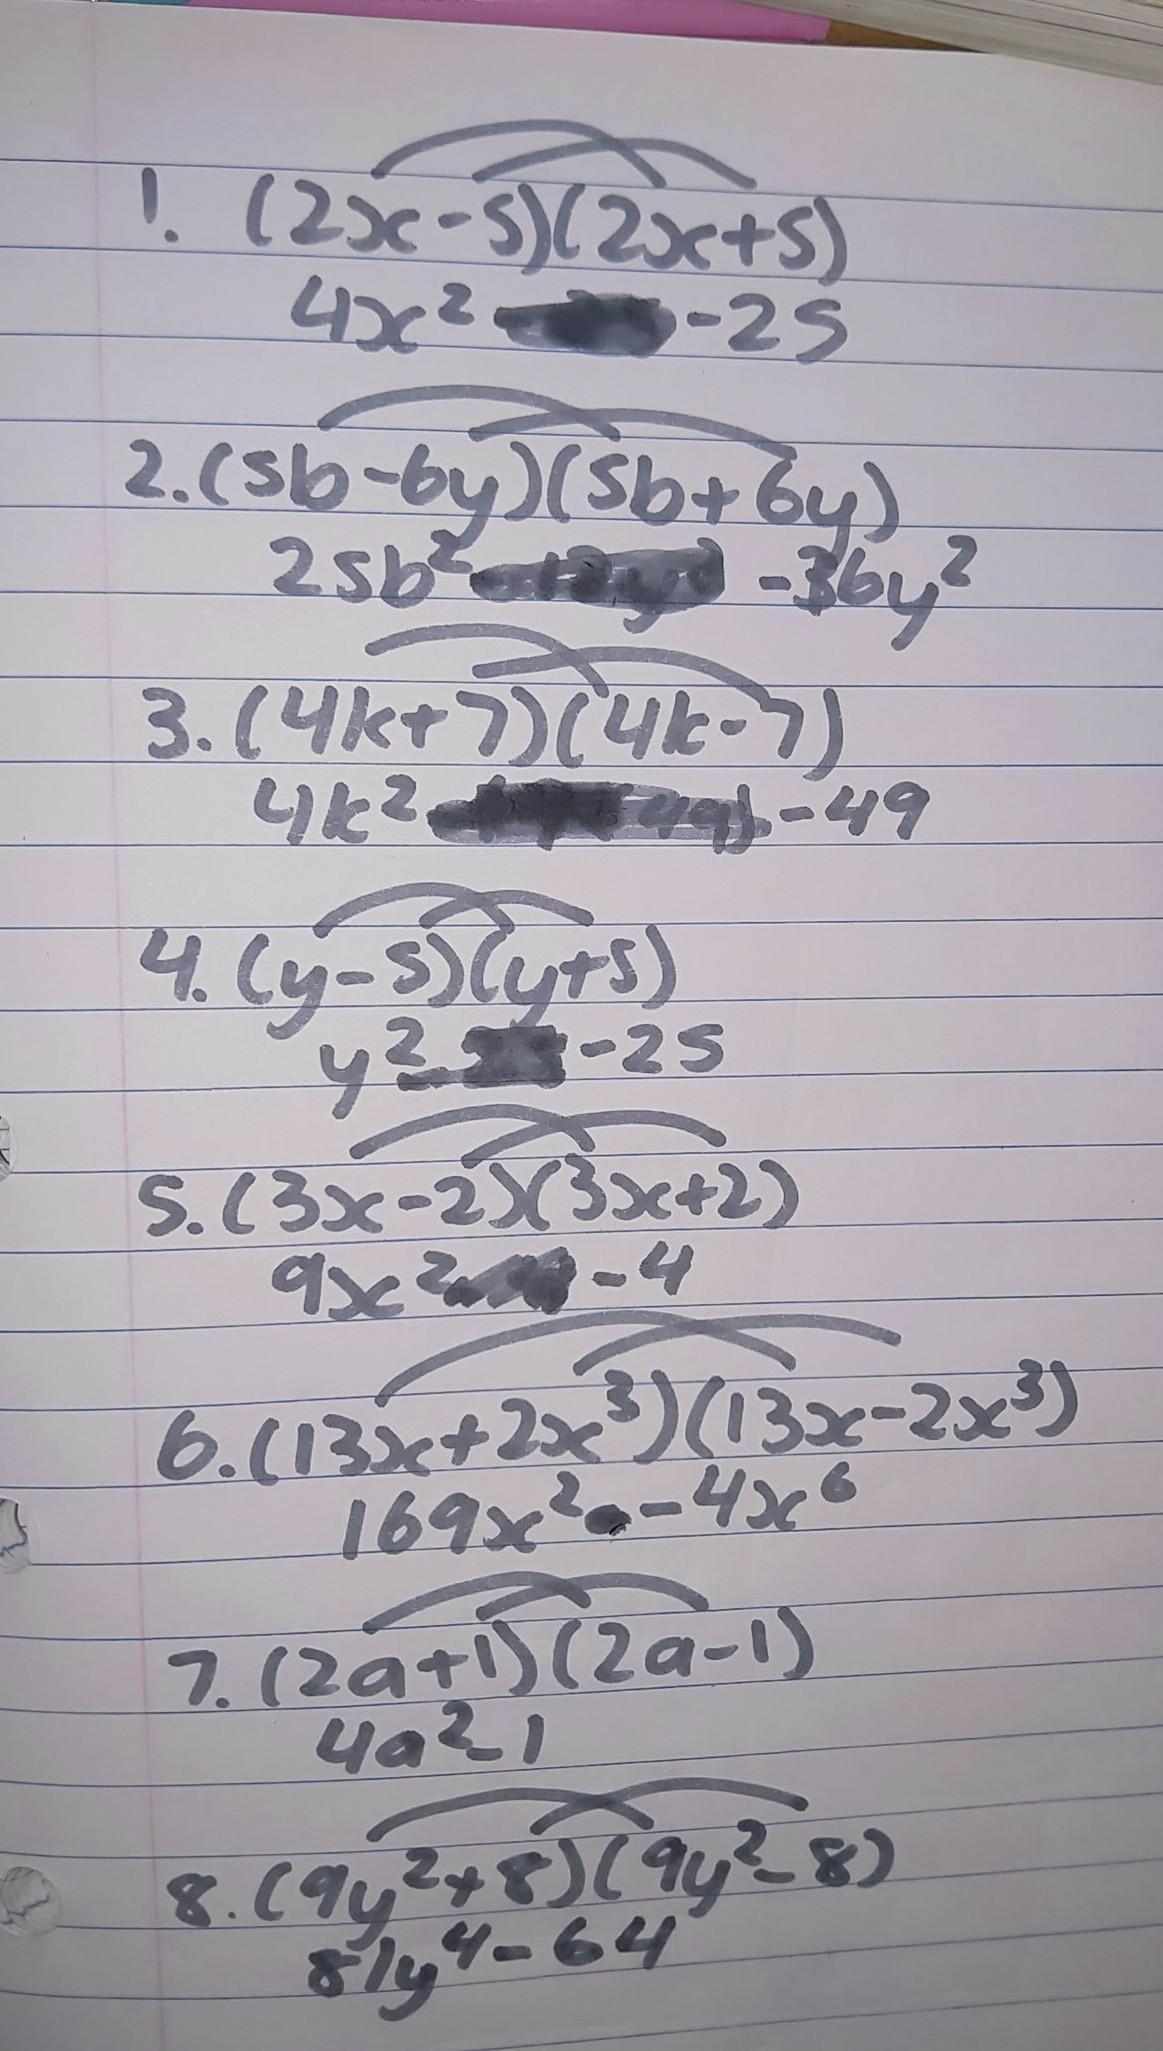 1. (2x-5)(2x+5)
4x² -25
2. (5b-6y)(5b+6y)
25b² -36y²
3. (4k+7)(4k-7)
4k² -49
4. (y-5)(y+5)
y² -25
5. (3x-2)(3x+2)
9x² -4
6. (13x+2x³)(13x-2x³)
169x² -4x⁶
7. (2a+1)(2a-1)
4a²-1
8. (9y²+8)(9y²-8)
81y⁴-64